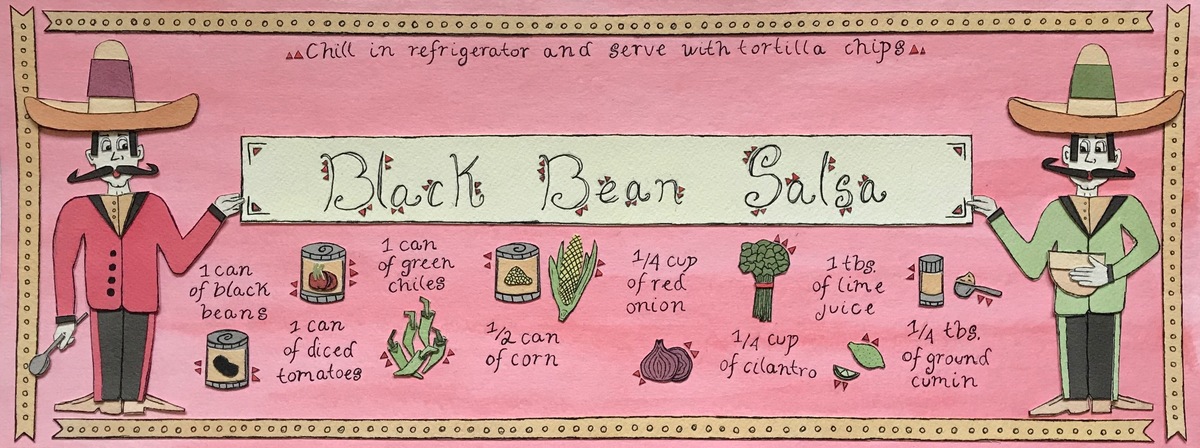 Chill in refrigerator and serve with tortilla chips
Black Bean Salsa
1 can
of black
beans
1 can
of diced
tomatoes
1 can
of green
chiles
1/2 can
of corn
1/4 cup
of red
onion
1/4 cup
of cilantro
1 tbs.
of lime
juice
1/4 tbs.
of ground
cumin